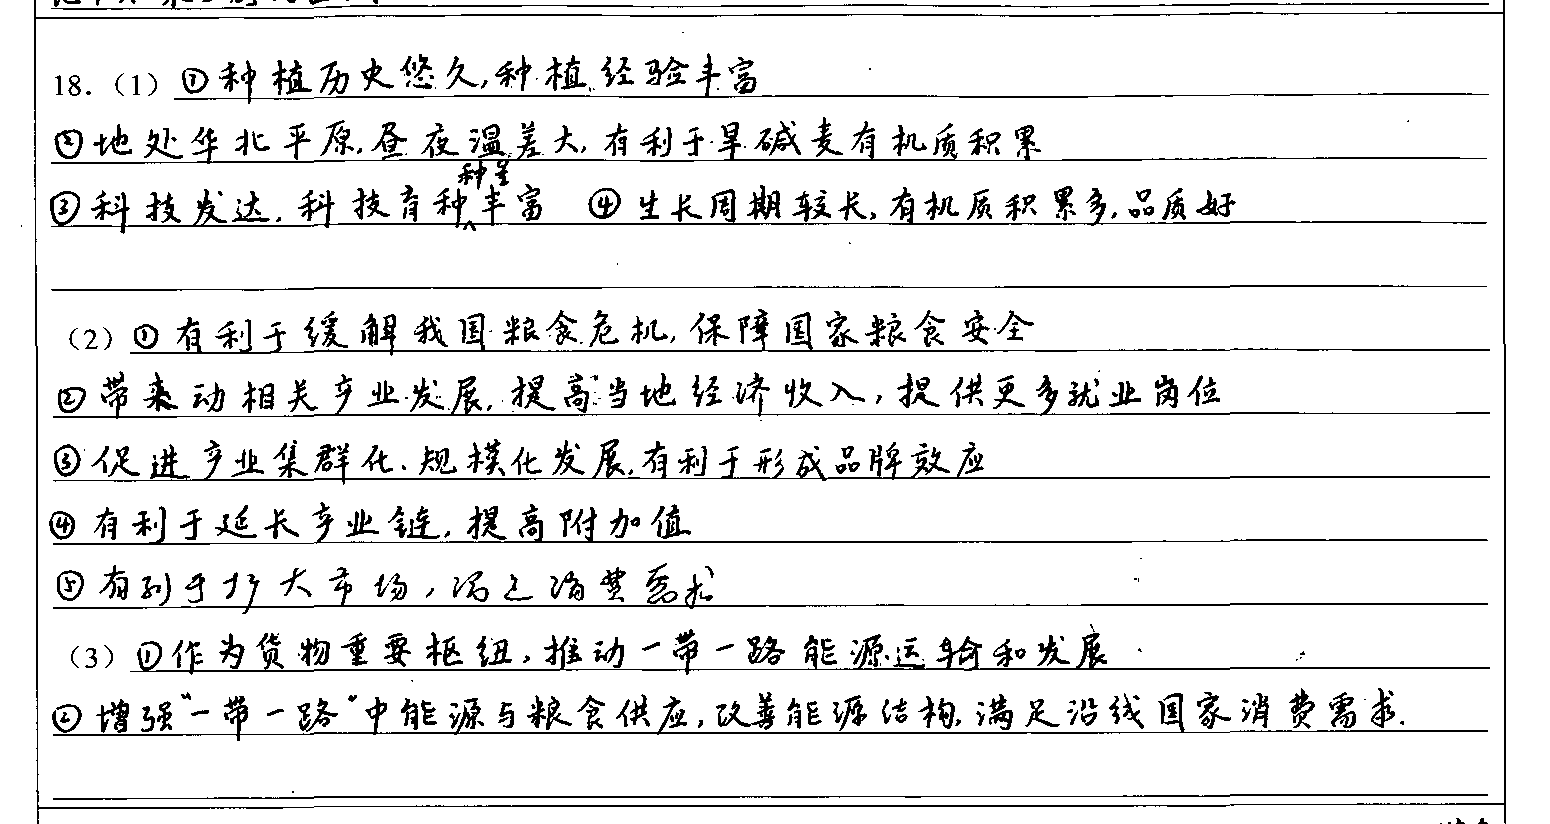 18.（1）①种植历史悠久,种植经验丰富
②地处华北平原,昼夜温差大,有利于旱碱麦有机质积累
③科技发达,科技育种种类丰富 ④生长周期较长,有机质积累多,品质好
（2）①有利于缓解我国粮食危机,保障国家粮食安全
②带来动相关产业发展,提高当地经济收入,提供更多就业岗位
③促进产业集群化、规模化发展,有利于形成品牌效应
④有利于延长产业链,提高附加值
⑤有利于扩大市场,满足消费需求
（3）①作为货物重要枢纽,推动一带一路能源运输和发展
②增强“一带一路”中能源与粮食供应,改善能源结构,满足沿线国家消费需求.